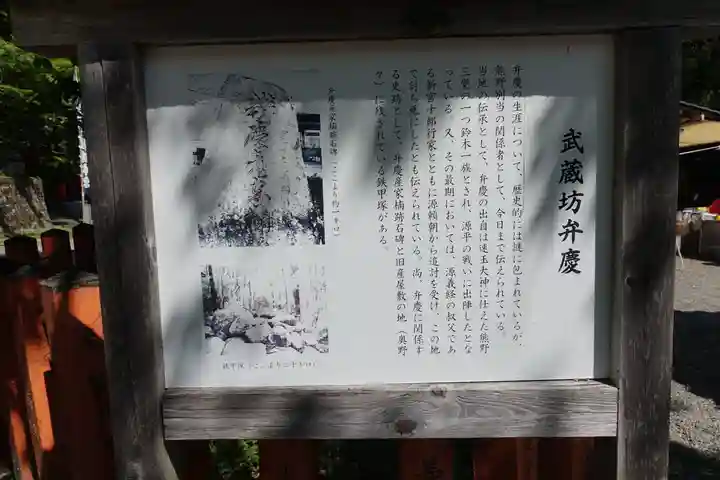 武蔵坊弁慶
弁慶の生涯について、歴史的には謎に包まれているが、
熊野別当の関係者として、今日まで伝えられている。
当地の伝承として、弁慶の出自は速玉大神に仕えた熊野
三党の一つ鈴木一族とされ、源平の戦いに出陣したとな
っている。又、その最期においては、源義経の叔父であ
る新宮十郎行家とともに源頼朝から追討を受け、この地
で討ち死にしたとも伝えられている。尚、弁慶に関係す
る史跡として、弁慶産家楠跡石碑と旧産屋敷の地（奥野
々）に残されている鉄甲塚がある。
弁慶産家楠跡石碑（ここより約一キロ）
鉄甲塚（ここより二十キロ）